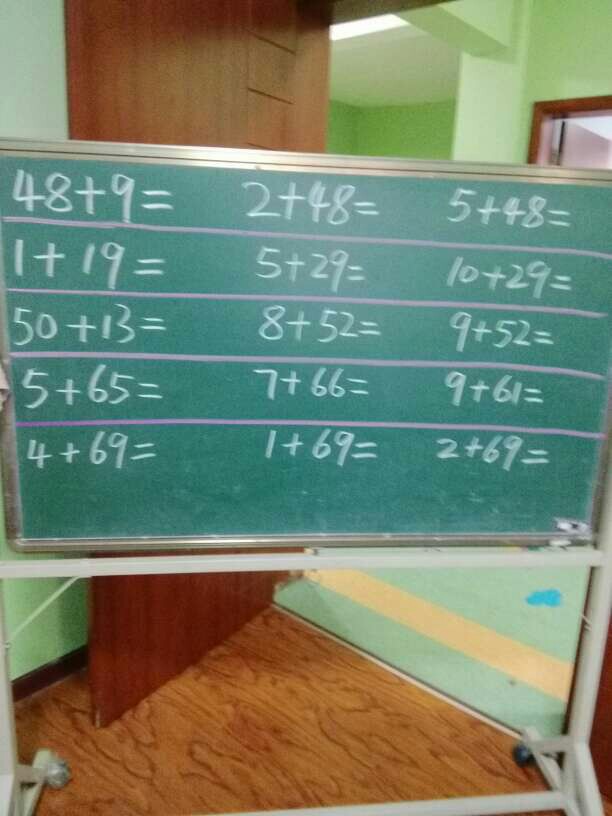 48+9= 2+48= 5+48=
1+19= 5+29= 10+29=
50+13= 8+52= 9+52=
5+65= 7+66= 9+61=
4+69= 1+69= 2+69=